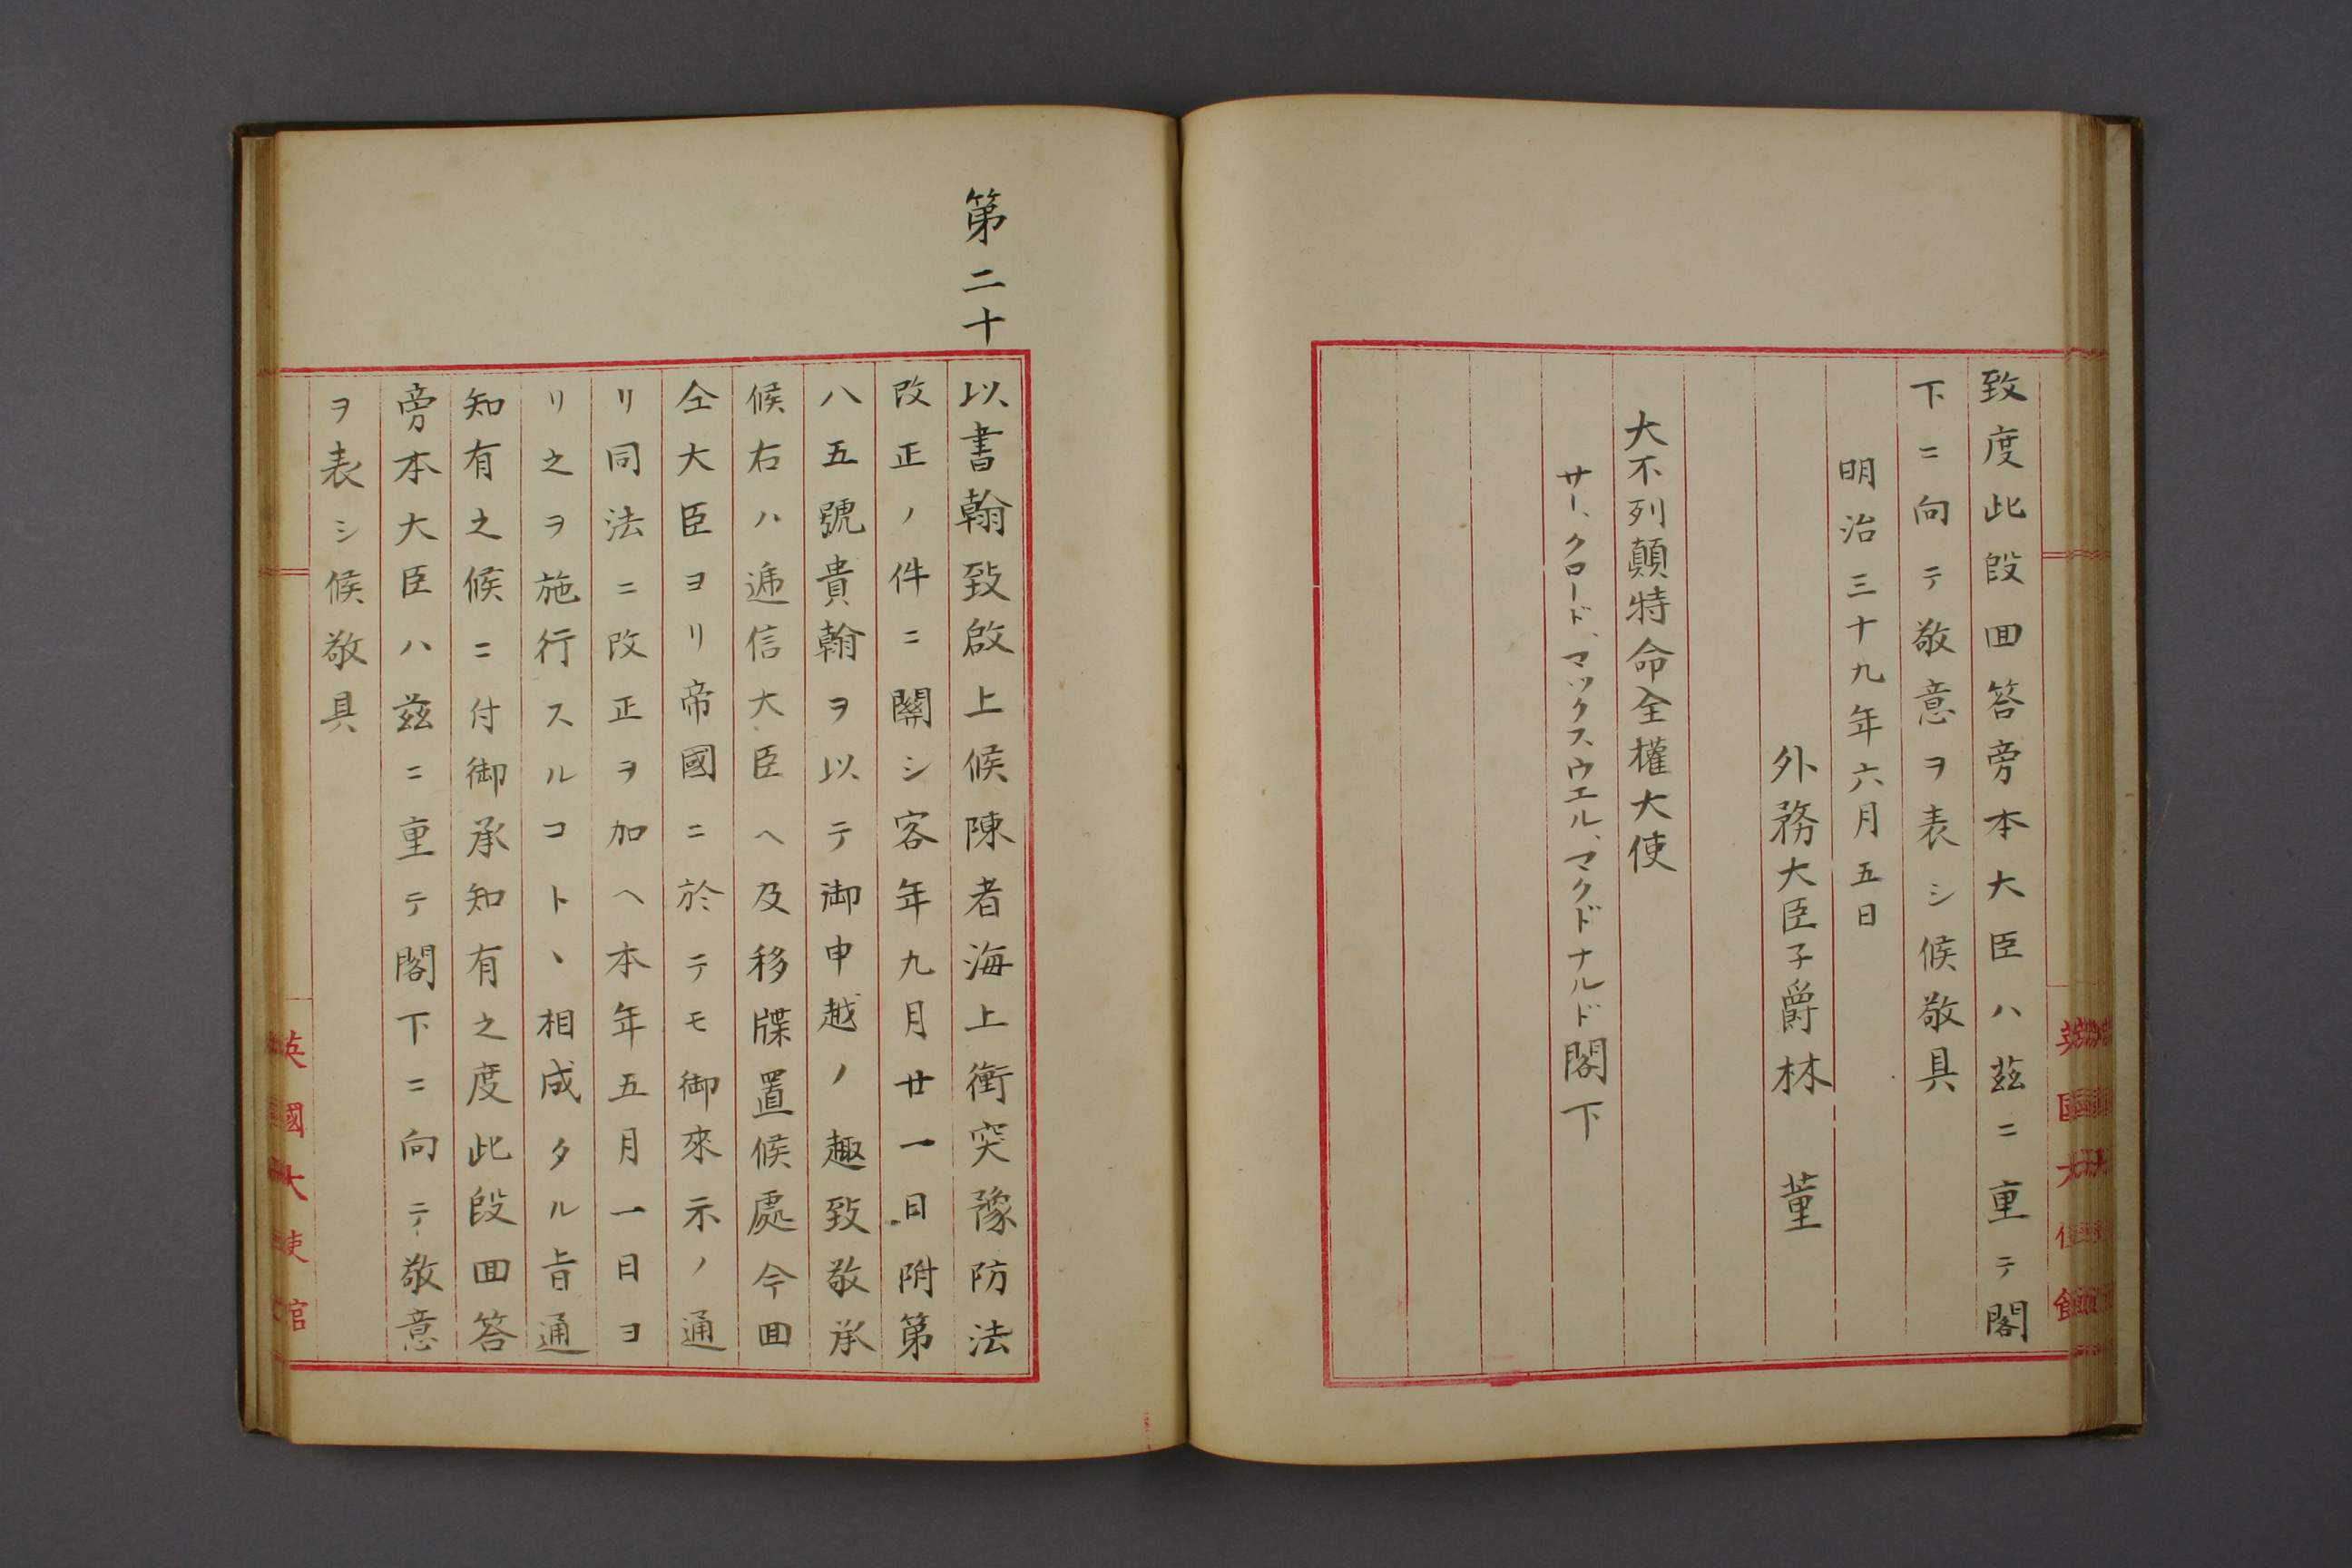 致度此段回答旁本大臣ハ茲ニ重テ閣
下ニ向テ敬意ヲ表シ候敬具
明治三十九年六月五日
外務大臣子爵林 董
大不列顛特命全權大使
サー、クロード、マックスウエル、マクドナルド閣下
第二十
以書翰致啟上候陳者海上衝突豫防法
改正ノ件ニ關シ客年九月廿一日附第
八五號貴翰ヲ以テ御申越ノ趣致敬承
候右ハ逓信大臣ヘ及移牒置候處今回
仝大臣ヨリ帝國ニ於テモ御來示ノ通
リ同法ニ改正ヲ加ヘ本年五月一日ヨ
リ之ヲ施行スルコトヽ相成タル旨通
知有之候ニ付御承知有之度此段回答
旁本大臣ハ茲ニ重テ閣下ニ向テ敬意
ヲ表シ候敬具
英國大使館